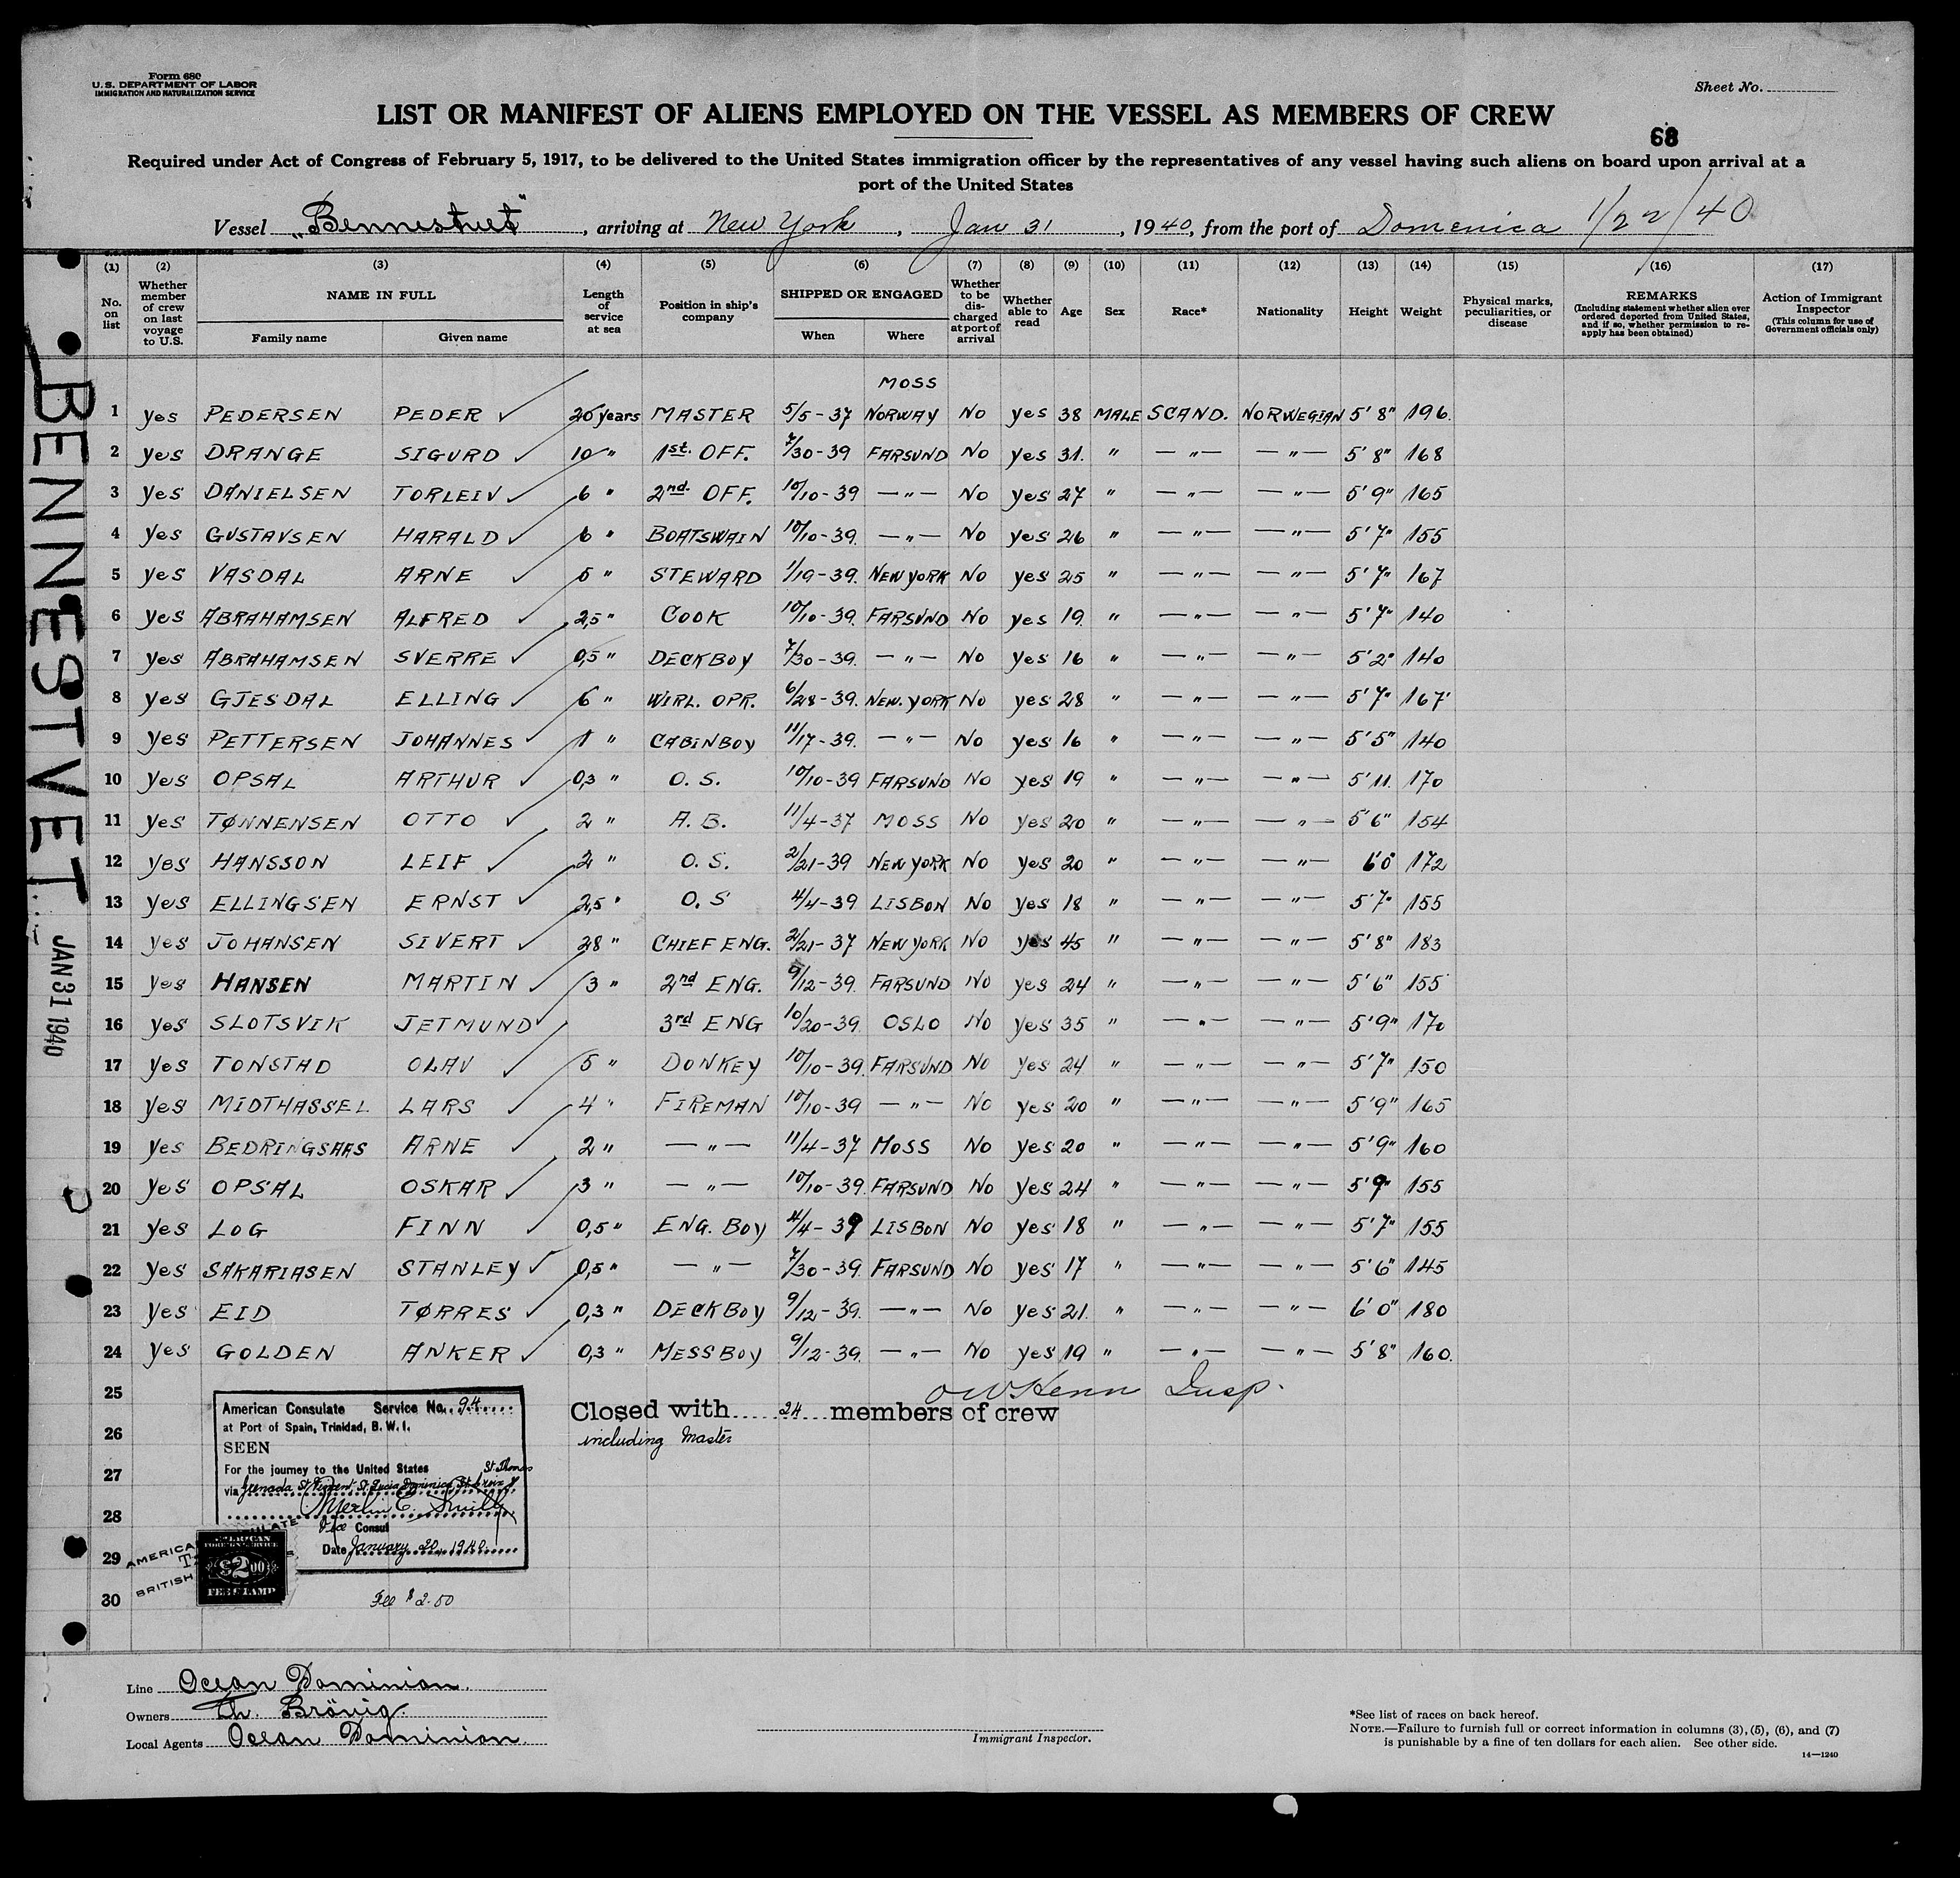 Form 680
U. S. DEPARTMENT OF LABOR
IMMIGRATION AND NATURALIZATION SERVICE
Sheet No.
LIST OR MANIFEST OF ALIENS EMPLOYED ON THE VESSEL AS MEMBERS OF CREW
68
Required under Act of Congress of February 5, 1917, to be delivered to the United States immigration officer by the representatives of any vessel having such aliens on board upon arrival at a
port of the United States
Vessel „Bennestvet", arriving at New York, Jan 31, 1940, from the port of Domenica 1/22/40
(1) (2) (3) (4) (5) (6) (7) (8) (9) (10) (11) (12) (13) (14) (15) (16) (17)
No. on list
Whether member of crew on last voyage to U.S.
NAME IN FULL
Family name
Given name
Length of service at sea
Position in ship's company
SHIPPED OR ENGAGED
When
Where
Whether to be discharged at port of arrival
Whether able to read
Age
Sex
Race*
Nationality
Height
Weight
Physical marks, peculiarities, or disease
REMARKS
(Including statement whether alien ever ordered deported from United States, and if so, whether permission to re-apply has been obtained)
Action of Immigrant Inspector
(This column for use of Government officials only)
MOSS
1 yes PEDERSEN PEDER ✓ 20 years MASTER 5/5-37 NORWAY No yes 38 MALE SCAND. NORWEGIAN 5'8" 196.
2 yes DRANGE SIGURD ✓ 10 " 1st. OFF. 7/30-39 FARSUND No yes 31. " —"— —"— 5'8" 168
3 yes DANIELSEN TORLEIV ✓ 6 " 2nd. OFF. 10/10-39 —"— No yes 27 " —"— —"— 5'9" 165
4 yes GUSTAVSEN HARALD ✓ 6 " BOATSWAIN 10/10-39. —"— No yes 26 " —"— —"— 5'7" 155
5 yes VASDAL ARNE ✓ 5 " STEWARD 1/19-39. NEW YORK No yes 25 " —"— —"— 5'7" 167
6 yes ABRAHAMSEN ALFRED ✓ 2,5 " COOK 10/10-39. FARSUND No yes 19. " —"— —"— 5'7" 140
7 yes ABRAHAMSEN SVERRE ✓ 0,5 " DECKBOY 7/30-39. —"— No yes 16 " —"— —"— 5'2" 140
8 yes GJESDAL ELLING ✓ 6 " WIRL. OPR. 6/28-39. NEW. YORK No yes 28 " —"— —"— 5'7" 167
9 yes PETTERSEN JOHANNES ✓ 1 " CABINBOY 11/17-39. —"— No yes 16 " —"— —"— 5'5" 140
10 yes OPSAL ARTHUR ✓ 0,3 " O. S. 10/10-39 FARSUND No yes 19 " —"— —"— 5'11. 170
11 yes TØNNENSEN OTTO ✓ 2 " A. B. 11/4-37 MOSS No yes 20 " —"— —"— 5'6" 154
12 yes HANSSON LEIF ✓ 2 " O. S. 2/21-39 NEW YORK No yes 20 " —"— —"— 6'0" 172
13 yes ELLINGSEN ERNST ✓ 2,5 " O. S 4/4-39 LISBON No yes 18 " —"— —"— 5'7" 155
14 yes JOHANSEN SIVERT ✓ 28 " CHIEF ENG. 2/21-37 NEW YORK No yes 45 " —"— —"— 5'8" 183
15 yes HANSEN MARTIN ✓ 3 " 2nd ENG. 9/12-39. FARSUND No yes 24 " —"— —"— 5'6" 155
16 yes SLOTSVIK JETMUND ✓ 3rd ENG 10/20-39. OSLO No yes 35 " —"— —"— 5'9" 170
17 yes TONSTAD OLAV ✓ 5 " DONKEY 10/10-39. FARSUND No yes 24 " —"— —"— 5'7" 150
18 yes MIDTHASSEL LARS ✓ 4 " FIREMAN 10/10-39 —"— No yes 20 " —"— —"— 5'9" 165
19 yes BEDRINGSAAS ARNE ✓ 2 " —"— 11/4-37 MOSS No yes 20 " —"— —"— 5'9" 160
20 yes OPSAL OSKAR ✓ 3 " —"— 10/10-39. FARSUND No yes 24 " —"— —"— 5'9" 155
21 yes LOG FINN ✓ 0,5 " ENG. BOY 4/4-39 LISBON No yes 18 " —"— —"— 5'7" 155
22 yes SAKARIASEN STANLEY ✓ 0,5 " —"— 7/30-39. FARSUND No yes 17 " —"— —"— 5'6" 145
23 yes EID TØRRES ✓ 0,3 " DECKBOY 9/12-39. —"— No yes 21. " —"— —"— 6'0" 180
24 yes GOLDEN ANKER ✓ 0,3 " MESSBOY 9/12-39. —"— No yes 19 " —"— —"— 5'8" 160.
25
26
27
28
29
30
Insp.
Closed with 24 members of crew
including Master
American Consulate Service No. 94
at Port of Spain, Trinidad, B. W. I.
SEEN
For the journey to the United States St. Thomas
via Grenada St Vincent, St. Lucia Dominica St. Croix &
Merlin E. Smith
Vice Consul
Date January 20, 1940
AMERICAN
FOREIGN SERVICE
$2.00
FEE STAMP
BRITISH
Fee $2.00
BENNESTVET
JAN 31 1940
Line Ocean Dominion.
Owners Th. Brövig.
Local Agents Ocean Dominion.
Immigrant Inspector.
*See list of races on back hereof.
NOTE.—Failure to furnish full or correct information in columns (3), (5), (6), and (7)
is punishable by a fine of ten dollars for each alien. See other side.
14—1240